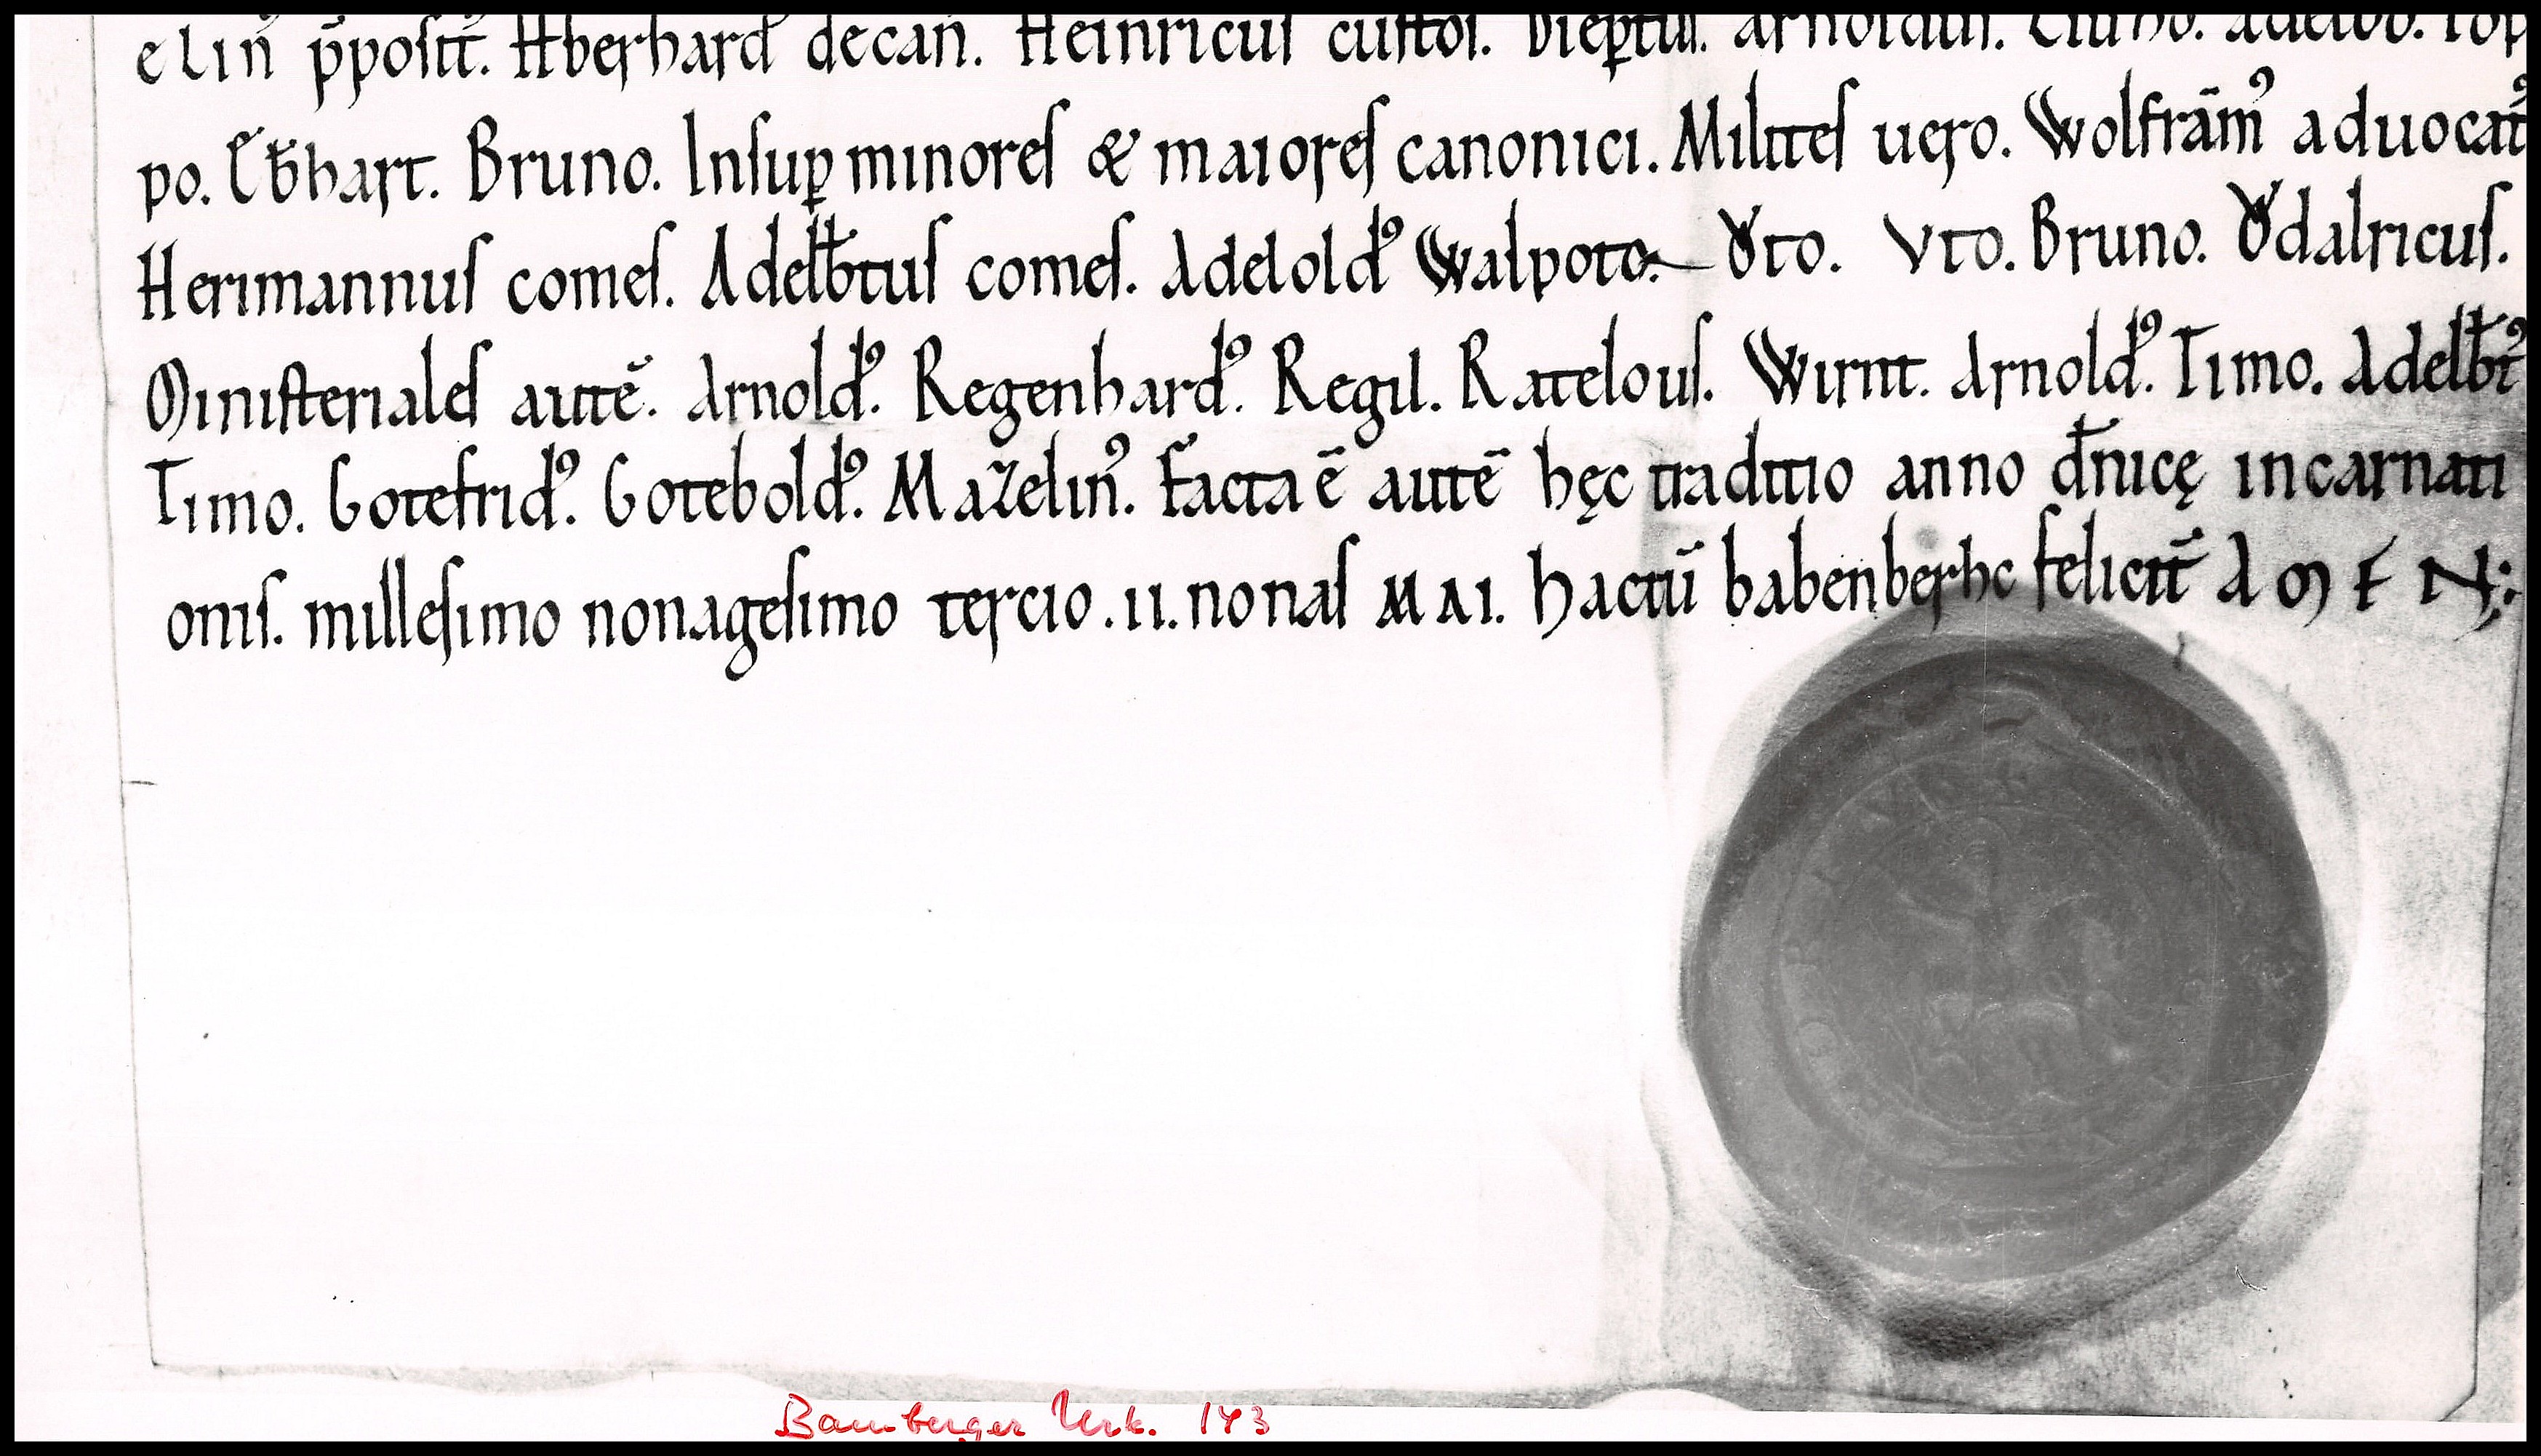 elin᷒ p̄posit᷒. Hberhard decan᷒. Heinricus custos. Dieptus. arnoldus. Liuno. adelbo. Pop
po. Eb̄hart. Bruno. Insup̱ minores & maiores canonici. Milites uero. Wolfrām᷒ aduocat᷒
Herimannus comes. Adelb̄tus comes. Adelold᷒ Walpoto. V̊to. Vto. Bruno. V̊dalricus.
Ministeriales autē. Arnold᷒. Regenhard᷒. Regil. Ratelous. Wirnt. Arnold᷒. Timo. Adelb̄t᷒
Timo. Gotefrid᷒. Gotebold᷒. Mazelin᷒. Facta ē autē hęc traditio anno d̄nicę incarnati
onis. millesimo nonagesimo tercio. II. nonas MAI. hactū babenberhc felicit̄ A M E N;
Bamberger Urk. 143